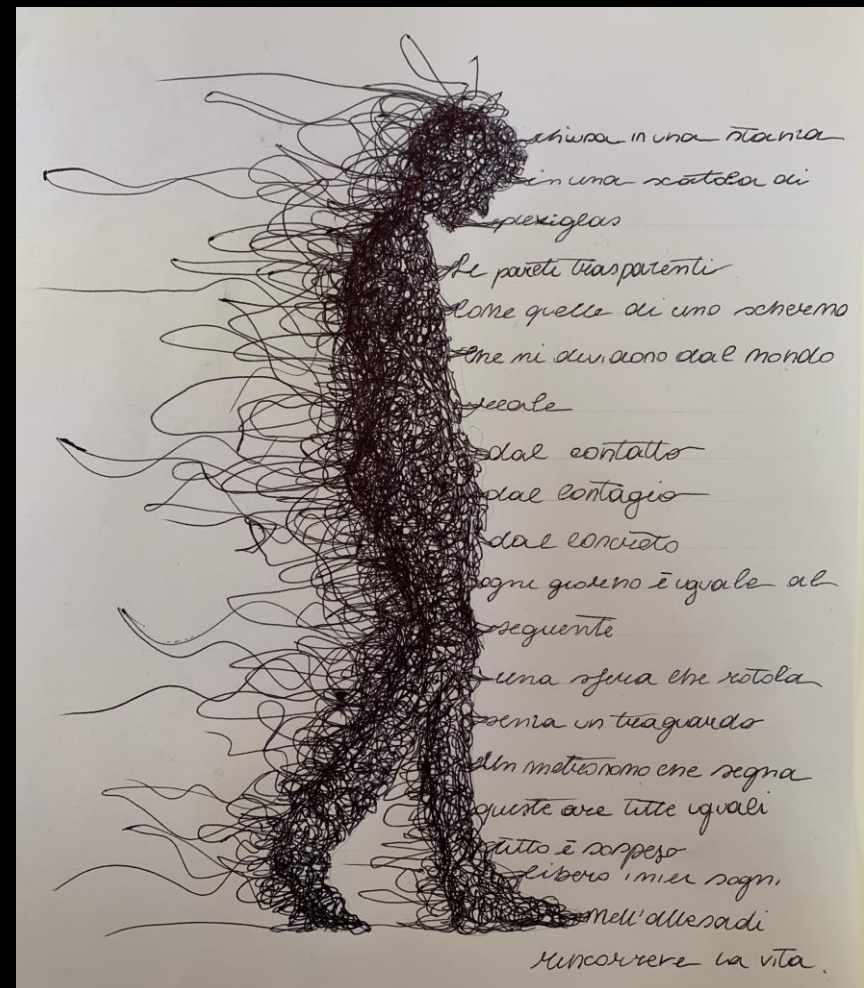 chiusa in una stanza
in una scatola di
plexiglas
Le pareti trasparenti
Come quelle di uno schermo
che mi dividono dal mondo
reale
dal contatto
dal contagio
dal concreto
ogni giorno è uguale al
seguente
una sfera che rotola
senza un traguardo
Un metronomo che segna
queste ore tutte uguali
tutto è sospeso
libero i miei sogni
Nell'attesa di
rincorrere la vita.